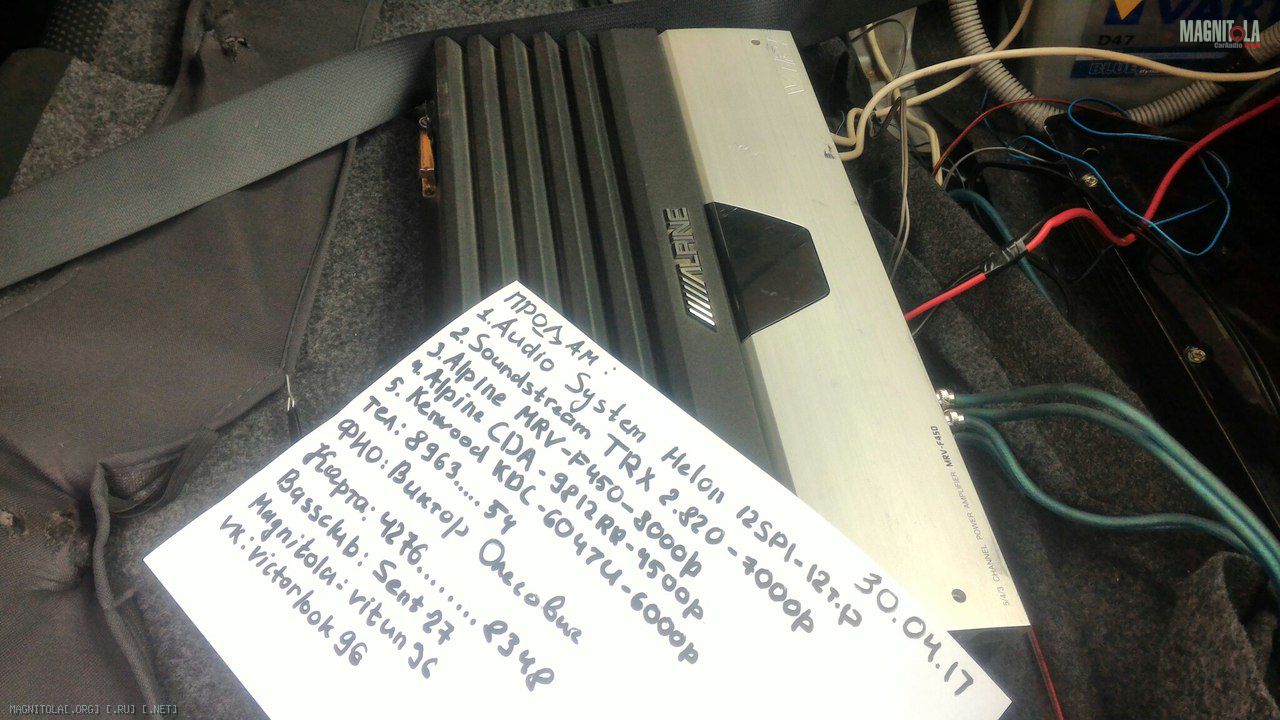 MAGNITOLA
CarAudio
VARTA
D47
BLUE dynamic
ALPINE
5/4/3 CHANNEL POWER AMPLIFIER MRV-F450
30.04.17
ПРОДАМ:
1. Audio System Helon 12SPL-12т.р
2. Soundstream TRX 2.820-7000р
3. Alpine MRV-F450-8000р
4. Alpine CDA-9812RR-4500р
5. Kenwood KDC-6047U-6000р
тел: 8963.....54
ФИО: Виктор Олегович
Карта: 4276......... 8348
Bassclub: Sent-27
Magnitola: vitun96
VK: victorbok96
MAGNITOLA[.ORG] [.RU] [.NET]